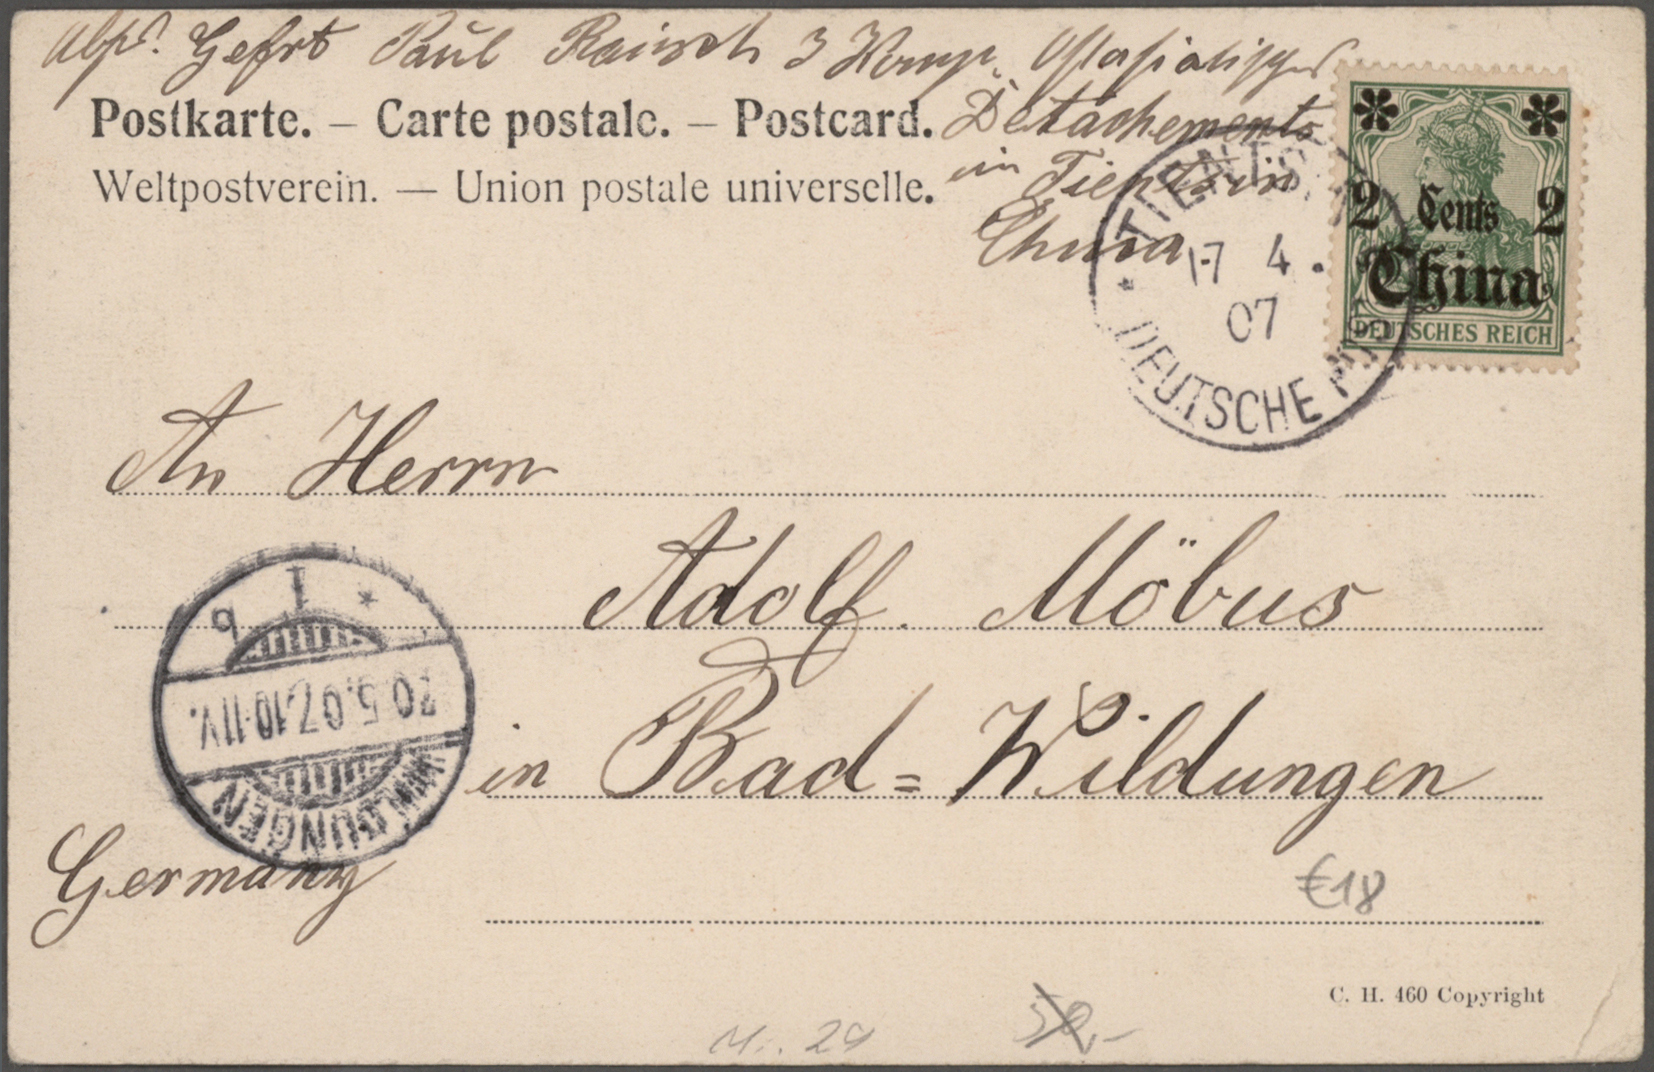 Abs. Gefrt Paul Rausch 3 Komp. Ostasiatisches
Postkarte. – Carte postale. – Postcard.
Detachements
Weltpostverein. — Union postale universelle.
in Tientsin
China
TIENTSIN
17 4.
07
DEUTSCHE POST
2 Cents 2
China
DEUTSCHES REICH
An Herrn
Adolf Möbus
in Bad=Wildungen
Germany
WILDUNGEN
20.5.07.10-11V.
* 1 b
€18
C. H. 460 Copyright
Mi. 29
50,-